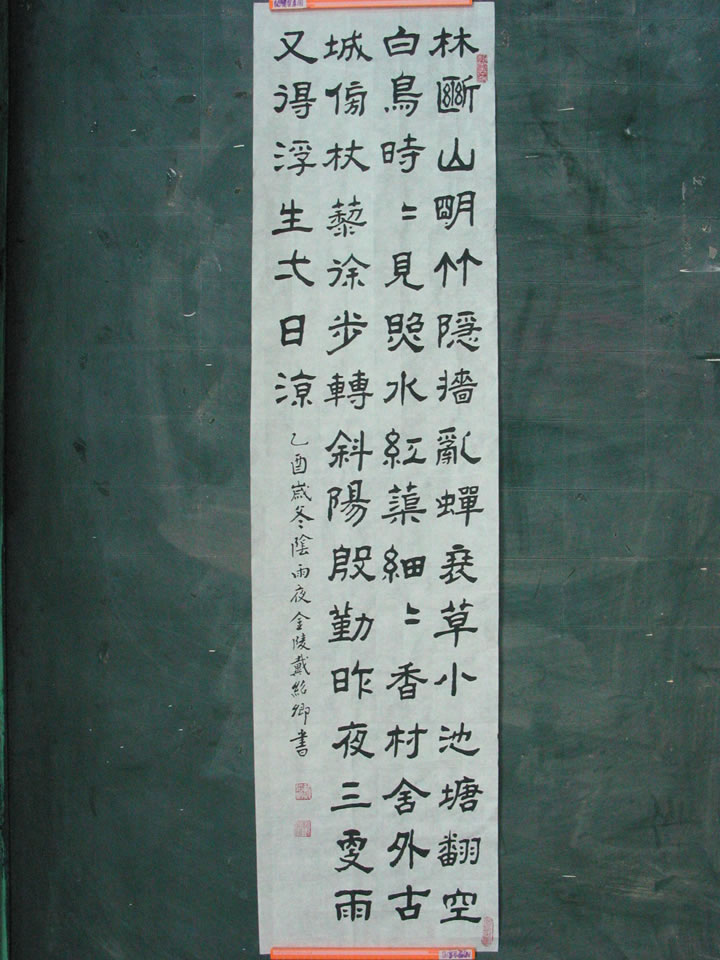 林斷山明竹隱牆亂蟬衰草小池塘翻空
白鳥時〻見照水紅蕖細〻香村舍外古
城傍杖藜徐步轉斜陽殷勤昨夜三更雨
又得浮生弌日涼
乙酉歲冬陰雨夜金陵戴紹卿書